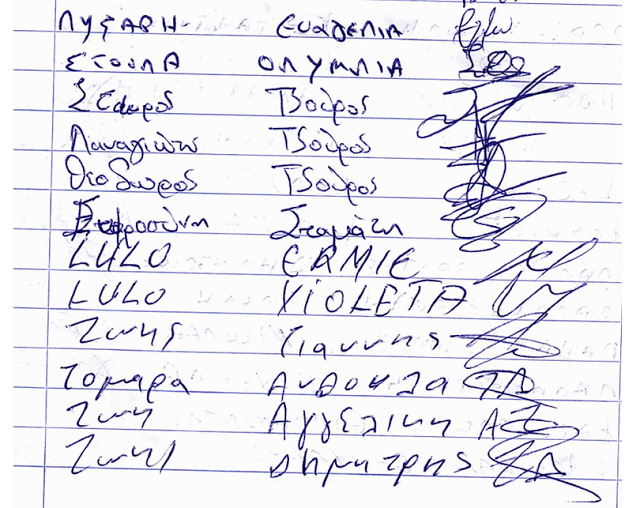 ΛΥΣΑΡΗ ΕΥΑΓΓΕΛΙΑ
ΣΤΟΥΛΑ ΟΛΥΜΠΙΑ
Σταύρος Τζούρος
Παναγιώτης Τζούρος
Θεόδωρος Τζούρος
Ευφροσύνη Σταμάτη
LULO ERMIE
LULO VIOLETA
Ζωης Γιαννης
Τομαρα Ανθουλα
Ζωη Αγγελικη ΑΖ
Ζωης Δημητρης